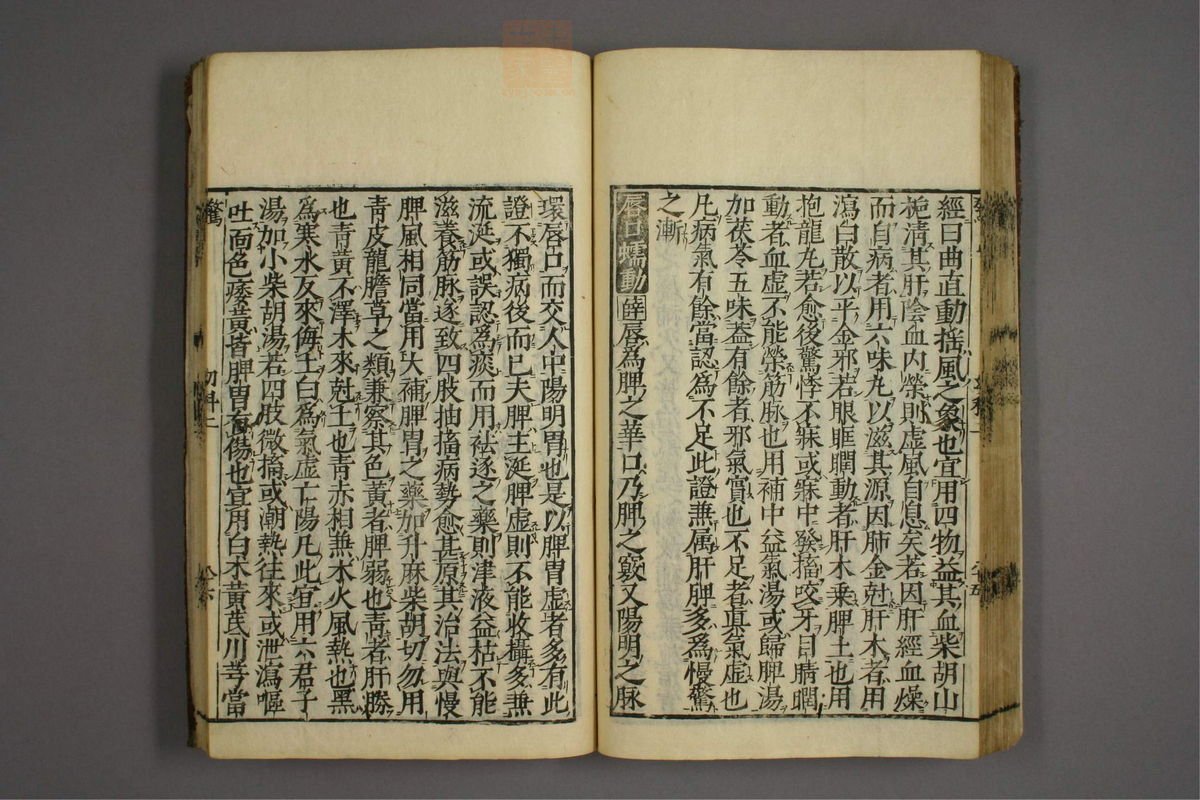 經曰曲直動搖風之象也宜用四物益其血柴胡山
梔清其肝陰血內榮則虛風自息矣若因肝經血燥
而自病者用六味丸以滋其源因肺金尅肝木者用
瀉白散以平金邪若眼眶瞤動者肝木乗脾土也用
抱龍丸若愈後驚悸不寐或寐中發搐咬牙目睛瞤
動者血虛不能榮筋脉也用補中益氣湯或歸脾湯
加茯苓五味蓋有餘者邪氣實也不足者真氣虛也
凡病氣有餘當認為不足此證兼属肝脾多為慢驚
之漸
唇口蠕動 薛唇為脾之華口乃脾之竅又陽明之脉
環唇口而交人中陽明胃也是以脾胃虛者多有此
證不獨病後而已夫脾主涎脾虛則不能收攝多兼
流涎或誤認為痰而用祛逐之藥則津液益枯不能
滋養筋脉遂致四肢抽搐病勢愈甚原其治法與慢
脾風相同當用大補脾胃之藥加升麻柴胡切勿用
青皮龍膽草之類兼察其色黃者脾弱也青者肝勝
也青黃不澤木來尅土也青赤相兼木火風熱也黑
為寒水反來侮土白為氣虛亡陽凡此宜用六君子
湯加小柴胡湯若四肢微搐或潮熱往來或泄瀉嘔
吐面色痿黃皆脾胃有傷也宜用白朮黃芪川芎當
驚
幼科二